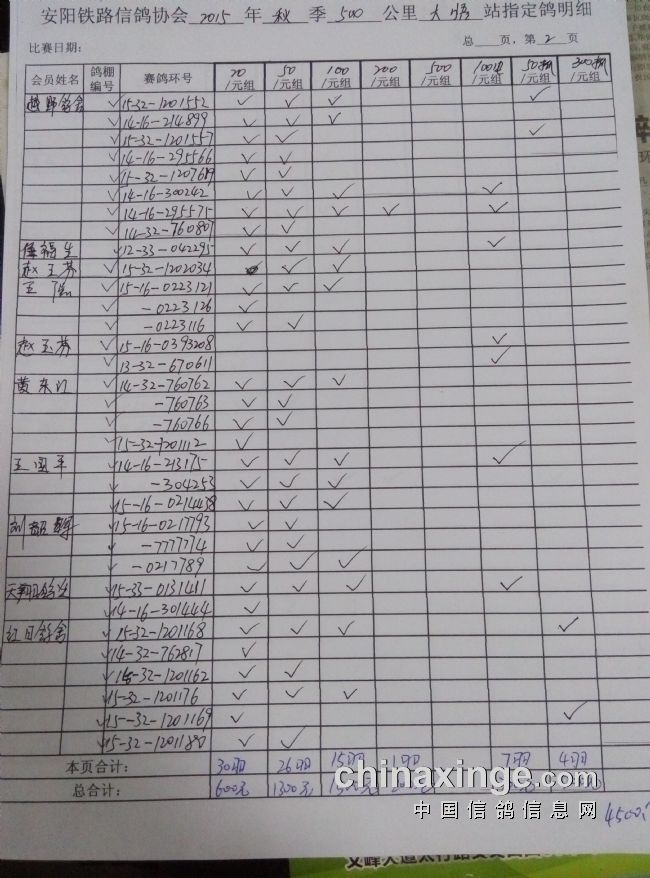 安阳铁路信鸽协会 2015 年 秋 季 500 公里 大悟 站指定鸽明细
比赛日期： 总 页，第 2 页
会员姓名 鸽棚编号 赛鸽环号 20/元组 50/元组 100/元组 200/元组 500/元组 /元组 /元组 /元组
越野鸽舍 ✓ 15-32-1201552 ✓ ✓ ✓ ✓
✓ 14-16-214899 ✓ ✓ ✓
✓ 15-32-1201557 ✓ ✓ ✓
✓ 14-16-295566 ✓ ✓
✓ 15-32-1207619 ✓ ✓
✓ 14-16-300242 ✓ ✓ ✓ ✓
✓ 14-16-295575 ✓ ✓ ✓ ✓ ✓
✓ 14-32-760807 ✓ ✓
✓ 12-33-042295 ✓ ✓ ✓ ✓
赵玉芬 ✓ 15-32-1202034 ✓ ✓ ✓
✓ 15-16-0223121 ✓ ✓ ✓
✓ -0223126 ✓
✓ -0223116 ✓ ✓
赵玉芬 ✓ 15-16-0393208 ✓
✓ 13-32-670611 ✓
黄东 ✓ 14-32-760762 ✓ ✓ ✓
✓ -760763 ✓ ✓
✓ -760766 ✓ ✓
✓ 15-32-1201112 ✓
王国平 ✓ 14-16-213175 ✓ ✓ ✓ ✓
✓ -304253 ✓ ✓ ✓
✓ 15-16-0214438 ✓ ✓ ✓
✓ 15-16-0217793 ✓ ✓
✓ -777774 ✓ ✓
✓ -0217789 ✓ ✓ ✓
天翔鸽业 ✓ 15-33-0131411 ✓ ✓ ✓ ✓
✓ 14-16-301444 ✓
红日鸽舍 ✓ 15-32-1201168 ✓ ✓ ✓ ✓
✓ 14-32-762817 ✓
✓ 15-32-1201162 ✓ ✓
✓ 15-32-1201176 ✓ ✓ ✓
✓ 15-32-1201169 ✓ ✓
✓ 15-32-1201180 ✓ ✓
本页合计： 30羽 26羽 15羽 1羽 7羽 4羽
总合计： 600元 1300元
chinaxinge.com
中国信鸽信息网